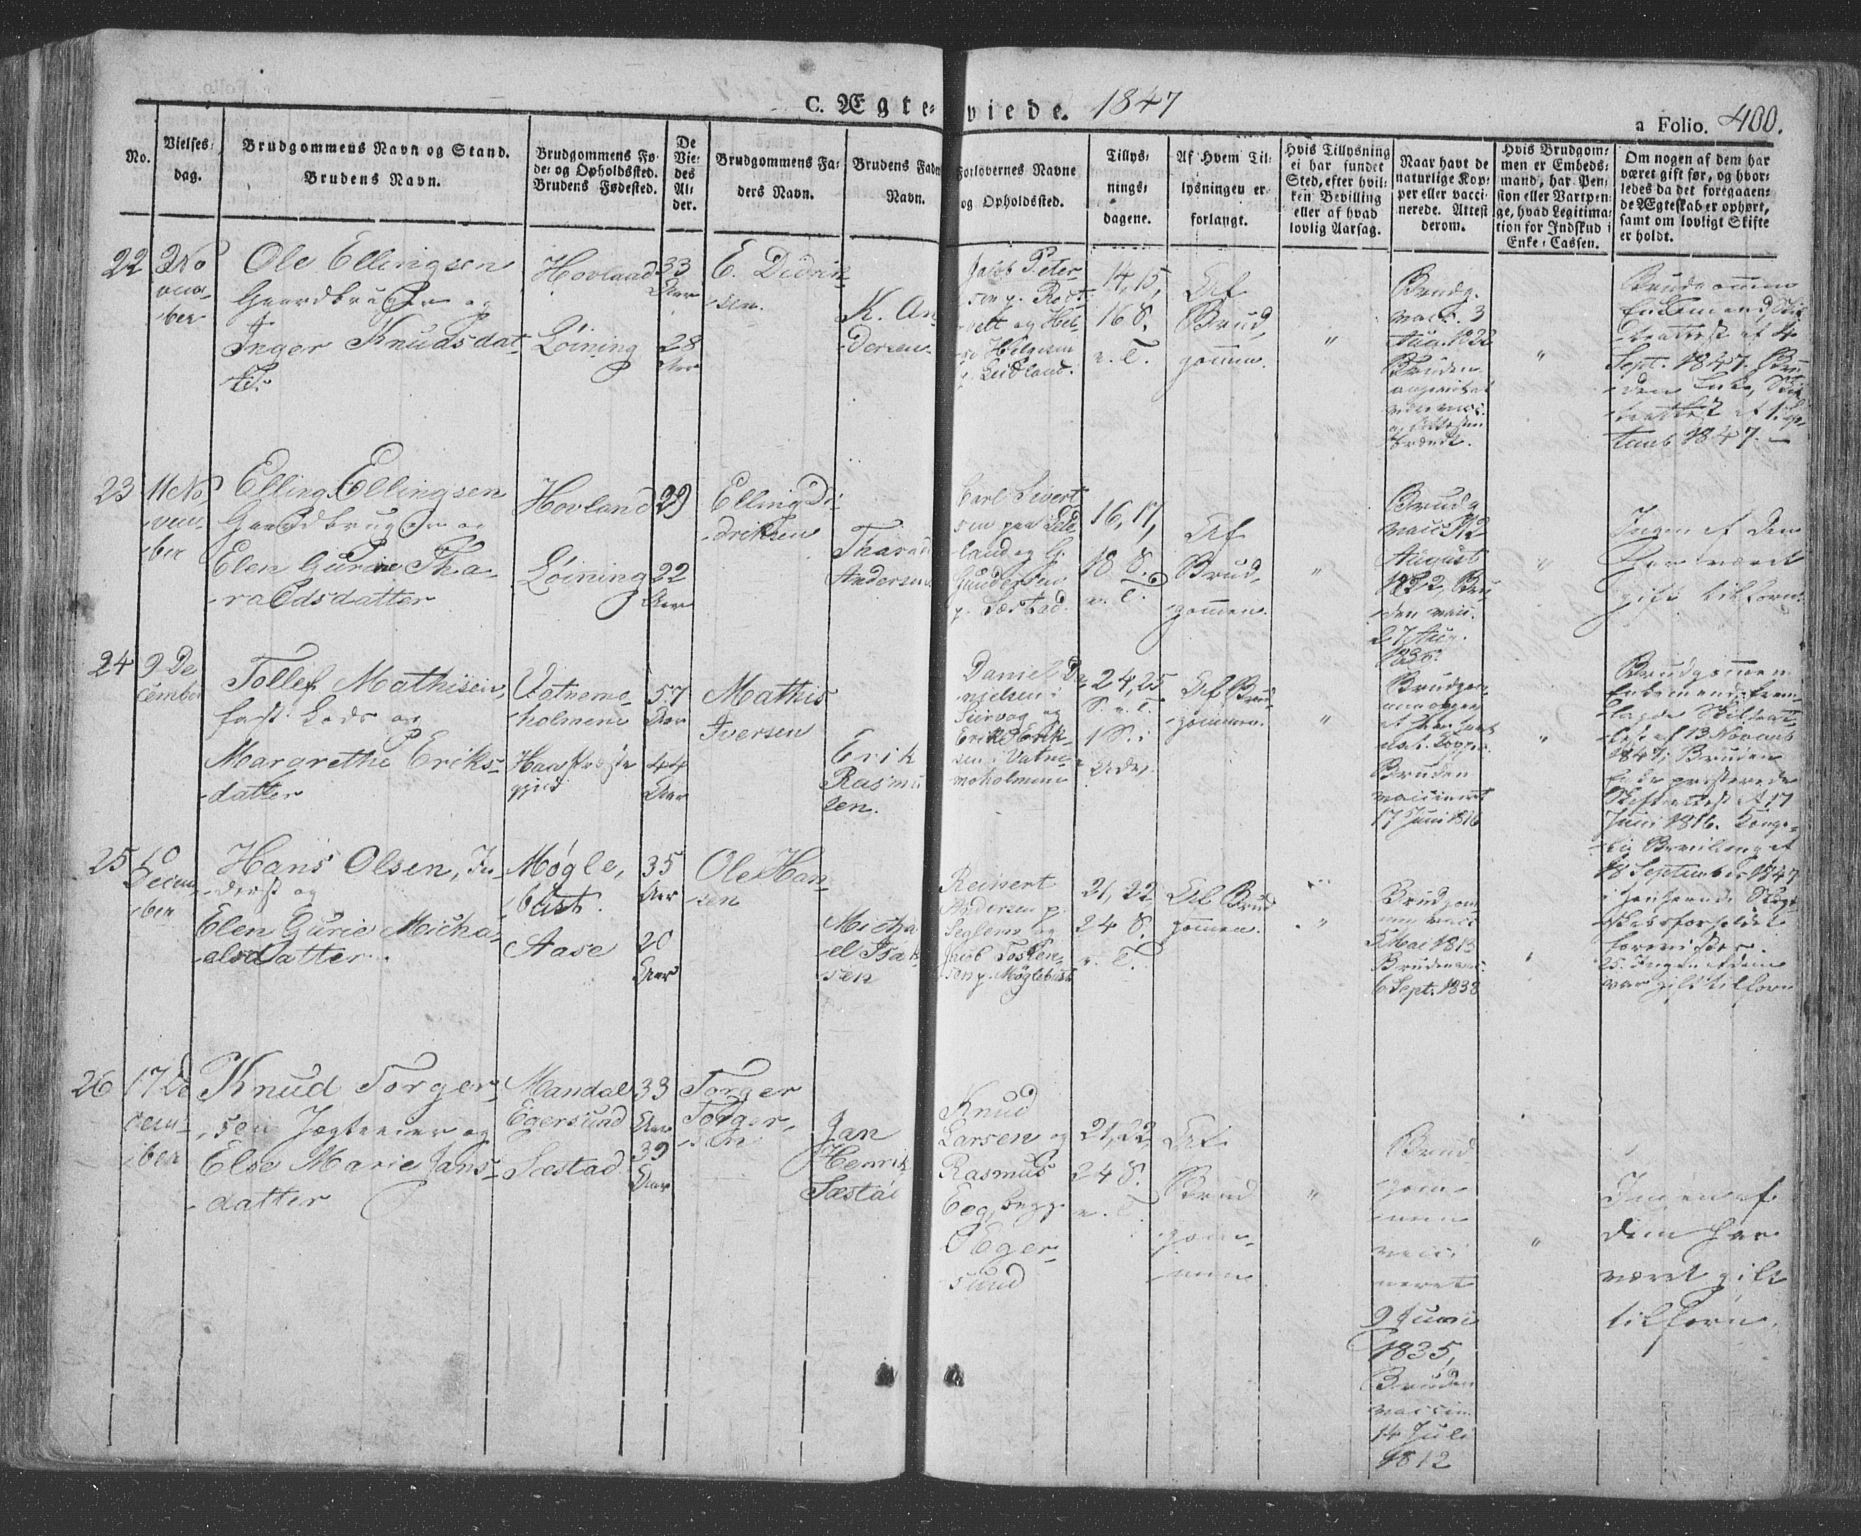 C. Ægte-viede. 1847
a Folio. 400.
No.
Vielses-
dag.
Brudgommens Navn og Stand.
Brudens Navn.
Brudgommens Fø-
de- og Opholdssted.
Brudens Fødested.
De
Vie-
des
Al-
der.
Brudgommens Fa-
ders Navn.
Brudens Fad
Navn.
Forlovernes Navne
og Opholdssted.
Tillys-
nings-
dagene.
Af Hvem Til-
lysningen er
forlangt.
Hvis Tillysning
ei har fundet
Sted, efter hvil-
ken Bevilling
eller af hvad
lovlig Aarsag.
Naar havt de
naturlige Kop-
per eller vacci-
nerede. Attest
derom.
Hvis Brudgom-
men er Embeds-
mand, har Pen-
sion eller Vartpen-
ge, hvad Legitima-
tion for Indskud i
Enke-Cassen.
Om nogen af dem har
været gift før, og hvor-
ledes da det foregaaen-
de Ægteskab er ophørt,
samt om lovligt Skifte
er holdt.
22
2 No
vem-
ber
Ole Ellingsen
Gaardbruger og
Inger Knudsdat-
ter
Hovland
Løining
33
Aar
28
Aar
E. Didrik-
sen.
K. An-
dersen
Jacob Peter-
sen p. Rost-
vett og Hel-
ge Helgesen
p. Leidland.
14, 15,
16 S.
e. T.
Af
Brud-
gommen.
"
Brudg.
vacc. 3
Aug. 1822
Bruden
"
Brudgommen
Enkemand, Ski-
fteattest af 4
Sept. 1847. Bru-
den Enke, Ski-
fteattest af 1 
1847.
23
11 No-
vem-
ber
Elling Ellingsen
Gaardbruger og
Elen Gurine Tha-
raldsdatter
Hovland
Løining
29
22
Aar
Elling Di-
driksen
Thorald
Andersen
Carl Sivert-
sen paa Lede-
land og G.
Gundersen
p. Sæstad.
16, 17,
18 S.
e. T.
Af
Brud-
gommen.
"
Brudg.
vacc. 12
August
1822, Bru-
den vacc.
27 Aug.
1835.
"
Ingen af dem
har været
gift tilforn.
24
9 De
cember
Tollef Mathisen,
fast. Lods og
Margrethe Eriks-
datter
Vatnemo-
holmene
57
Aar
44
Aar
Mathis
Iversen
Erik
Rasmu
sen.
Daniel Da-
nielsen i
og
Erik Erik-
sen i Vatne-
moholmene
24, 25
S. e. T.
1 S. i
Adv.
Af Brud-
gommen.
"
Brudgom-
men
Bruden
vaccineret
17 Juni 1816
"
Brudgommen
Enkemand, frem-
lagde Skifteat-
test af 13 Novemb
1847; Bruden
Skifteattest af 17
Juni 1816. Konge-
lig Bevilling af
18 September 1847
i henseende Slægt-
skabsforholdet
forevistes.
25
10
Decem-
ber
Hans Olsen, In-
derst og
Elen Gurie Micha-
elsdatter.
Møgle-
bust.
Aase
35
Aar
20
Aar
Ole Han-
sen
Micha
el Isak
sen
Reinert
Andersen p.
Segleme og
Jacob Torkel-
sen p. Møglebust
21, 22,
24 S.
e. T.
Af Brud
gommen.
"
Brudgom-
men vacc.
5 Mai 1813
Bruden vacc.
6 Sept. 1838
"
25. Ingen af dem
var gift tilforn
26
17 De
cem-
ber
Knud Torger-
sen Jægteeier og
Else Marie Jans-
datter
Mandal
Egersund
Sæstad
33
Aar
39
Aar
Torger
Torger-
sen
Jan
Henrik
Sæstad
Knud
Larsen og
Rasmus
Eeg, begge
i Eger-
sund
21, 22,
24 S.
e. T.
Af
Brud
gom-
men
"
Brud-
gom-
men
vacci
neret
9 Juni
1835,
Bruden
vaccin.
14 Juli
1812
"
Ingen af
dem har
været gift
tilforn.